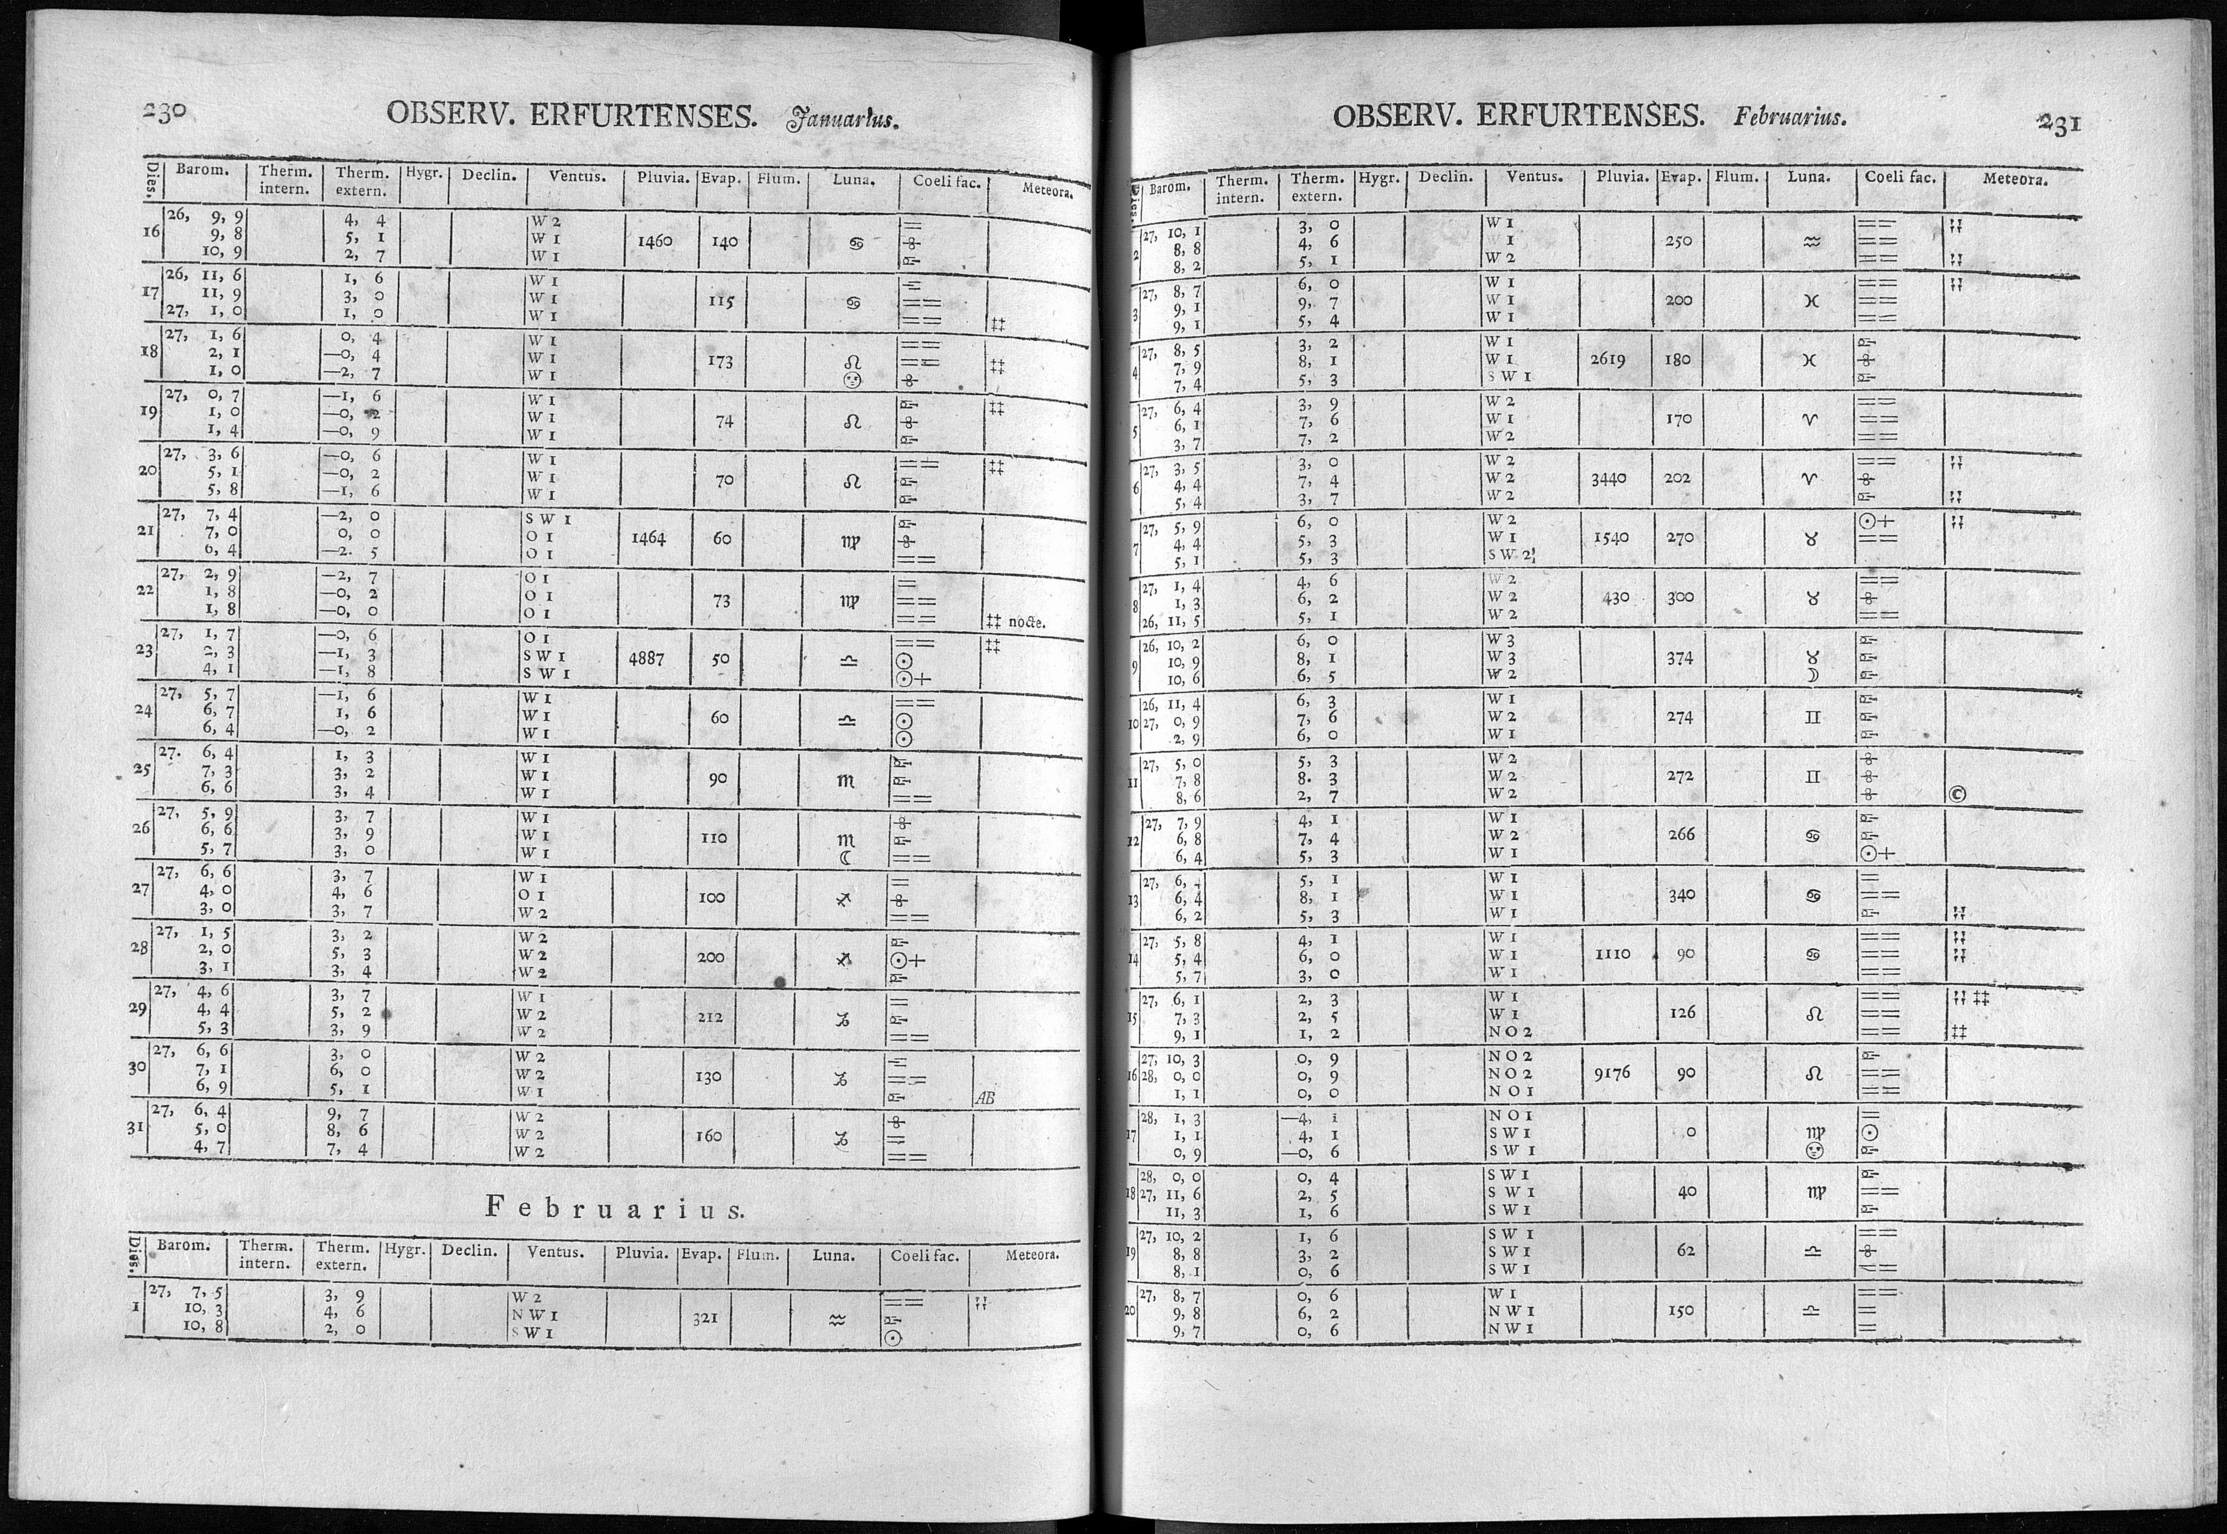 230 OBSERV. ERFURTENSES. Januarius.
Dies. Barom. Therm. intern. Therm. extern. Hygr. Declin. Ventus. Pluvia. Evap. Flum. Luna. Coeli fac. Meteora.
26, 9, 9 4, 4 W 2 =
16 9, 8 5, 1 W 1 1460 140 ♋
10, 9 2, 7 W 1
26, 11, 6 1, 6 W 1
17 11, 9 3, 0 W 1 115 ♋ ==
27, 1, 0 1, 0 W 1 == ‡‡
27, 1, 6 0, 4 W 1 ==
18 2, 1 —0, 4 W 1 173 ♌ == ‡‡
1, 0 —2, 7 W 1
27, 0, 7 —1, 6 W 1 ‡‡
19 1, 0 —0, 2 W 1 74 ♌
1, 4 —0, 9 W 1
27, 3, 6 —0, 6 W 1 == ‡‡
20 5, 1 —0, 2 W 1 70 ♌
5, 8 —1, 6 W 1
27, 7, 4 —2, 0 S W 1
21 7, 0 0, 0 O 1 1464 60 ♍
6, 4 —2. 5 O 1 ==
27, 2, 9 —2, 7 O 1 =
22 1, 8 —0, 2 O 1 73 ♍ ==
1, 8 —0, 0 O 1 == ‡‡ nocte.
27, 1, 7 —0, 6 O 1 == ‡‡
23 2, 3 —1, 3 S W 1 4887 50 ♎ ☉
4, 1 —1, 8 S W 1 ☉+
27, 5, 7 —1, 6 W 1 ==
24 6, 7 1, 6 W 1 60 ♎ ☉
6, 4 —0, 2 W 1 ☉
27. 6, 4 1, 3 W 1
25 7, 3 3, 2 W 1 90 ♏
6, 6 3, 4 W 1 ==
27, 5, 9 3, 7 W 1
26 6, 6 3, 9 W 1 110 ♏
5, 7 3, 0 W 1 ☾ ==
27, 6, 6 3, 7 W 1 =
27 4, 0 4, 6 O 1 100 ♐
3, 0 3, 7 W 2 ==
27, 1, 5 3, 2 W 2
28 2, 0 5, 3 W 2 200 ♐ ☉+
3, 1 3, 4 W 2
27, 4, 6 3, 7 W 1 =
29 4, 4 5, 2 W 2 212 ♑
5, 3 3, 9 W 2 ==
27, 6, 6 3, 0 W 2
30 7, 1 6, 0 W 2 130 ♑ ==
6, 9 5, 1 W 1 AB
27, 6, 4 9, 7 W 2
31 5, 0 8, 6 W 2 160 ♑ =
4, 7 7, 4 W 2 ==
Februarius.
Dies. Barom. Therm. intern. Therm. extern. Hygr. Declin. Ventus. Pluvia. Evap. Flum. Luna. Coeli fac. Meteora.
27, 7, 5 3, 9 W 2 ==
1 10, 3 4, 6 N W 1 321 ♒
10, 8 2, 0 S W 1 ☉
OBSERV. ERFURTENSES. Februarius. 231
Barom. Therm. intern. Therm. extern. Hygr. Declin. Ventus. Pluvia. Evap. Flum. Luna. Coeli fac. Meteora.
27, 10, 1 3, 0 W 1 ==
2 8, 8 4, 6 W 1 250 ♒ ==
8, 2 5, 1 W 2 ==
27, 8, 7 6, 0 W 1 ==
3 9, 1 9, 7 W 1 200 ♓ ==
9, 1 5, 4 W 1 ==
27, 8, 5 3, 2 W 1
4 7, 9 8, 1 W 1 2619 180 ♓
7, 4 5, 3 S W 1
27, 6, 4 3, 9 W 2 ==
5 6, 1 7, 6 W 1 170 ♈ ==
3, 7 7, 2 W 2 ==
27, 3, 5 3, 0 W 2 ==
6 4, 4 7, 4 W 2 3440 202 ♈
5, 4 3, 7 W 2
27, 5, 9 6, 0 W 2 ☉+
7 4, 4 5, 3 W 1 1540 270 ♉ ==
5, 1 5, 3 S W 2
27, 1, 4 4, 6 W 2 ==
8 1, 3 6, 2 W 2 430 300 ♉
26, 11, 5 5, 1 W 2 ==
26, 10, 2 6, 0 W 3
9 10, 9 8, 1 W 3 374 ♉
10, 6 6, 5 W 2 ☽
26, 11, 4 6, 3 W 1
10 27, 0, 9 7, 6 W 2 274 ♊
2, 9 6, 0 W 1
27, 5, 0 5, 3 W 2
11 7, 8 8. 3 W 2 272 ♊
8, 6 2, 7 W 2 ©
27, 7, 9 4, 1 W 1
12 6, 8 7, 4 W 2 266 ♋
6, 4 5, 3 W 1 ☉+
27, 6, 4 5, 1 W 1 =
13 6, 4 8, 1 W 1 340 ♋ ==
6, 2 5, 3 W 1
27, 5, 8 4, 1 W 1 ==
14 5, 4 6, 0 W 1 1110 90 ♋ ==
5, 7 3, 0 W 1 ==
27, 6, 1 2, 3 W 1 == ‡‡
15 7, 3 2, 5 W 1 126 ♌ ==
9, 1 1, 2 N O 2 == ‡‡
27, 10, 3 0, 9 N O 2
16 28, 0, 0 0, 9 N O 2 9176 90 ♌ ==
1, 1 0, 0 N O 1 ==
28, 1, 3 —4, 1 N O 1 =
17 1, 1 4, 1 S W 1 0 ♍ ☉
0, 9 —0, 6 S W 1
28, 0, 0 0, 4 S W 1
18 27, 11, 6 2, 5 S W 1 40 ♍ ==
11, 3 1, 6 S W 1
27, 10, 2 1, 6 S W 1 ==
19 8, 8 3, 2 S W 1 62 ♎
8, 1 0, 6 S W 1 ==
27, 8, 7 0, 6 W 1 ==
20 9, 8 6, 2 N W 1 150 ♎ =
9, 7 0, 6 N W 1 =